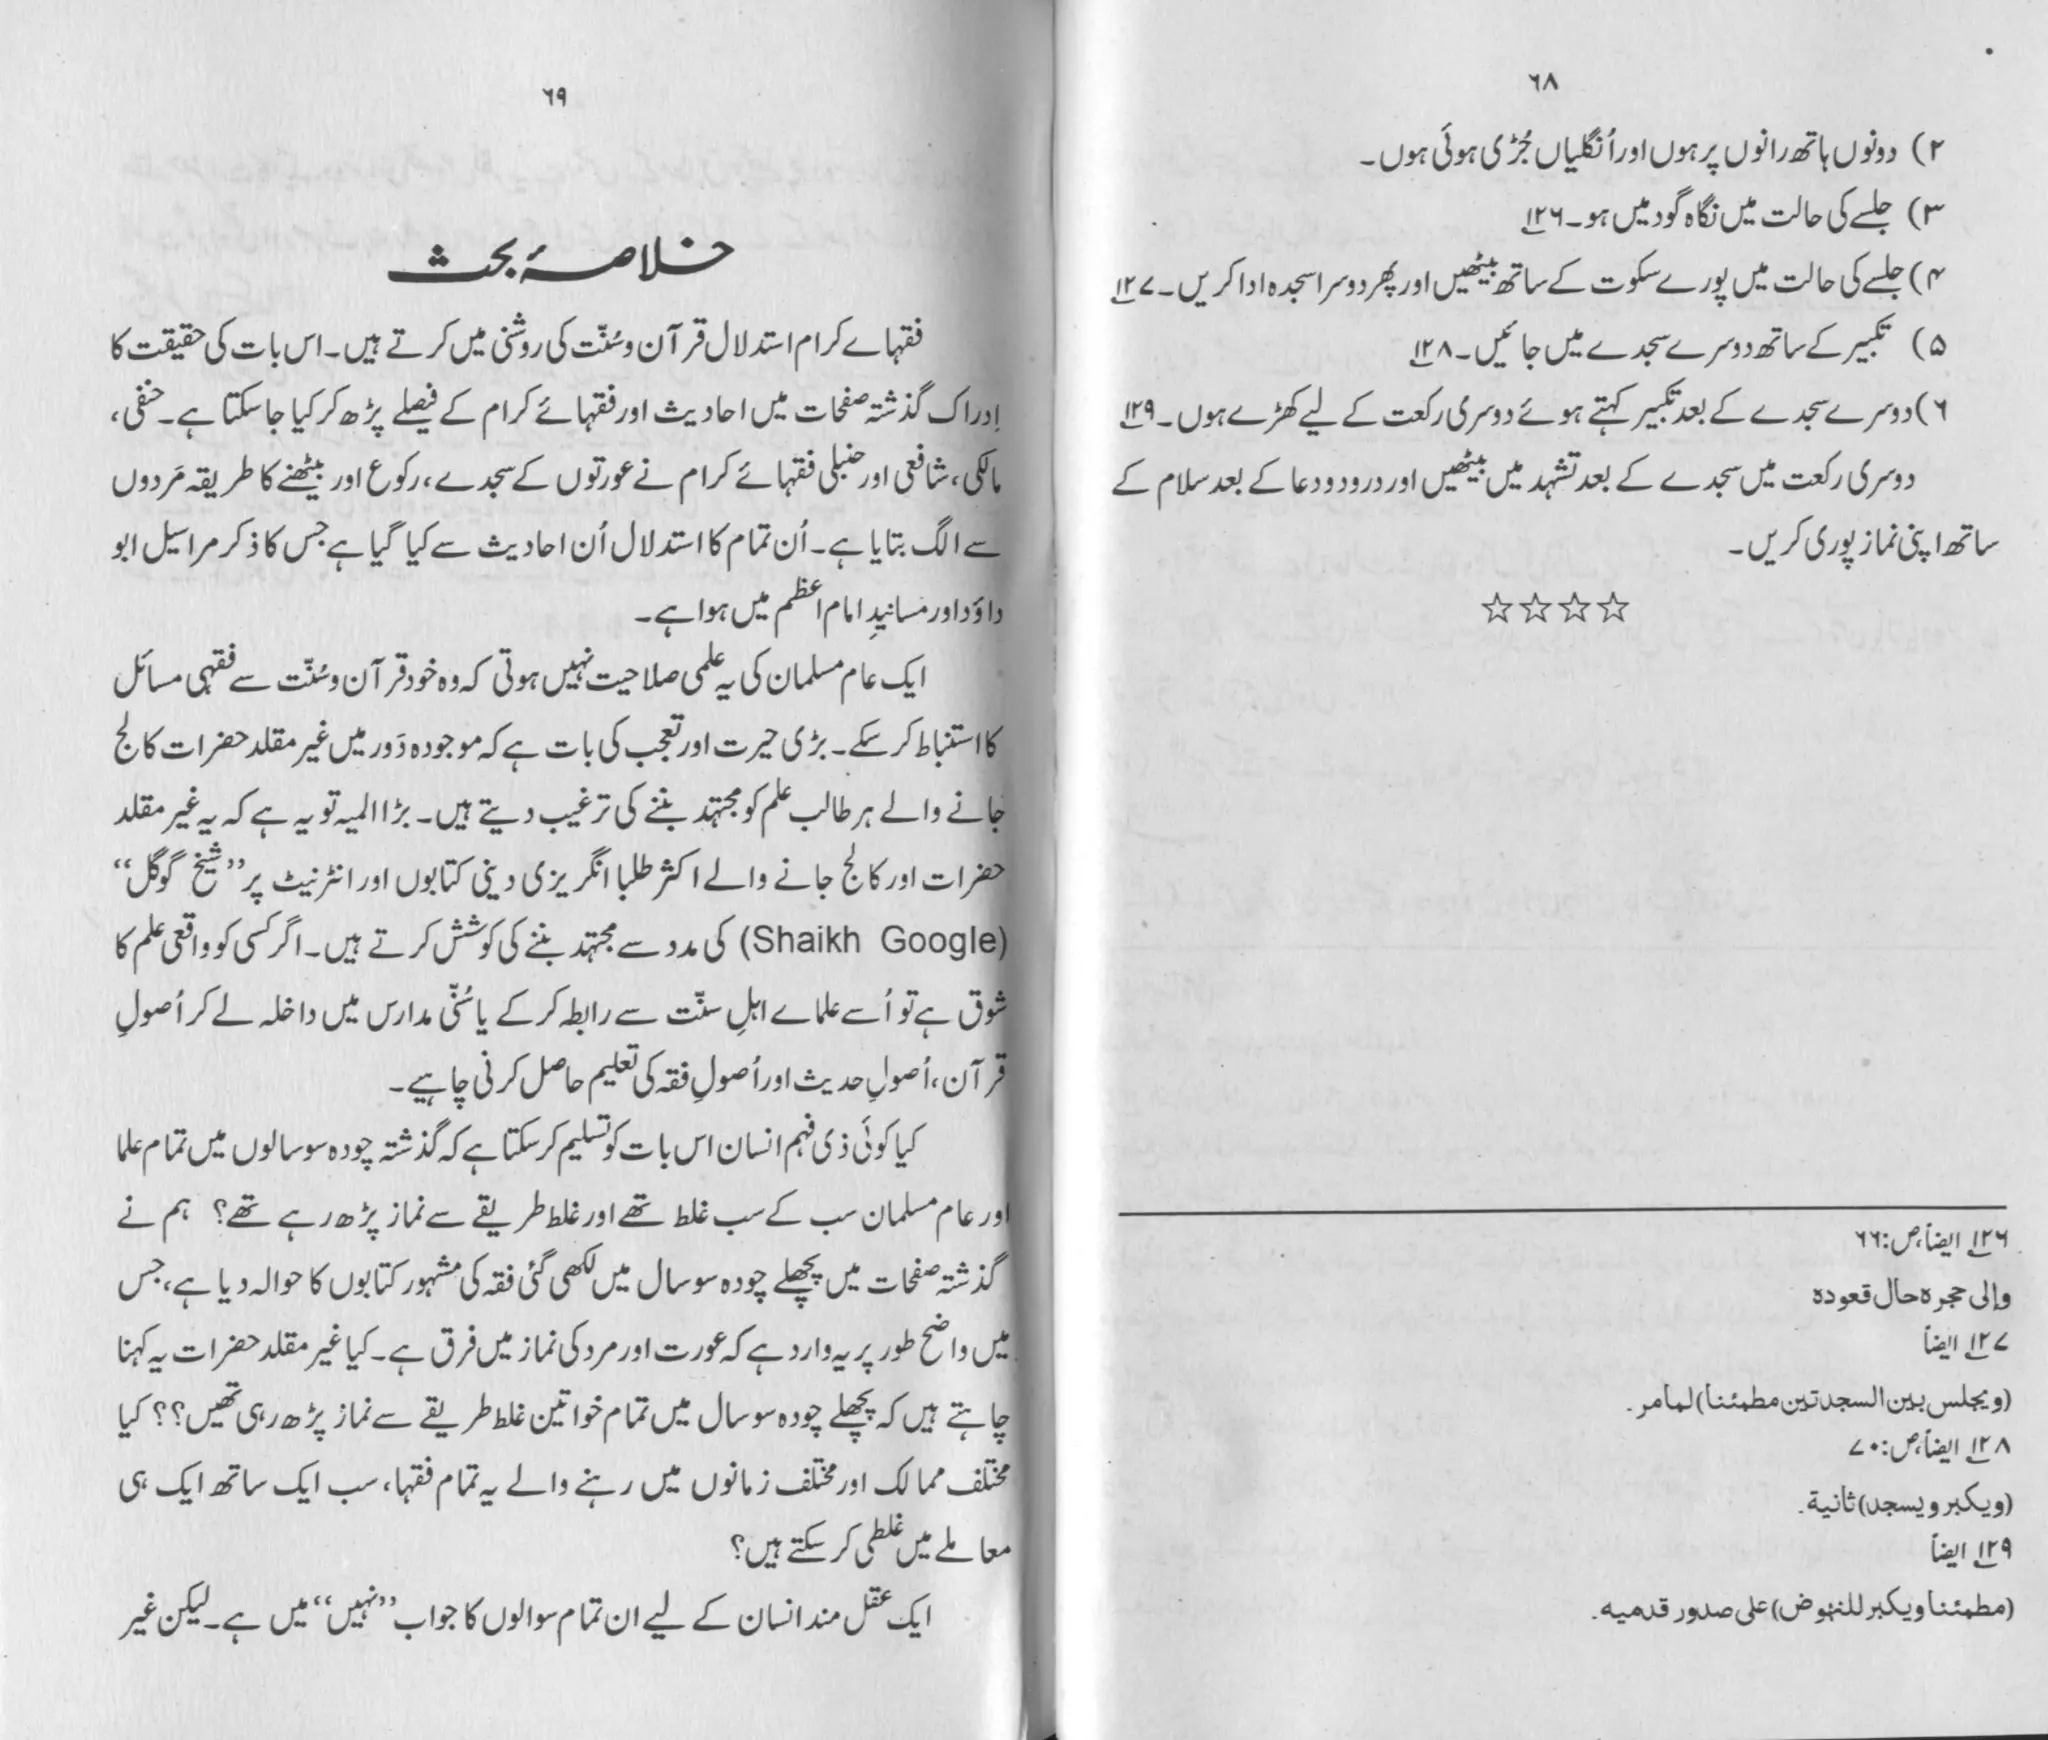 ۶۸
۲) دونوں ہاتھ رانوں پر ہوں اور اُنگلیاں جُڑی ہوئی ہوں۔
۳) جلسے کی حالت میں نگاہ گود میں ہو۔۱۲۶
۴) جلسے کی حالت میں پورے سکوت کے ساتھ بیٹھیں اور پھر دوسرا سجدہ ادا کریں۔۱۲۷
۵) تکبیر کے ساتھ دوسرے سجدے میں جائیں۔۱۲۸
۶) دوسرے سجدے کے بعد تکبیر کہتے ہوئے دوسری رکعت کے لیے کھڑے ہوں۔۱۲۹
دوسری رکعت میں سجدے کے بعد تشہد میں بیٹھیں اور درود و دعا کے بعد سلام کے
ساتھ اپنی نماز پوری کریں۔
☆☆☆☆
۱۲۶ ایضاً،ص:۶۶
وإلى حجره حال قعوده
۱۲۷ ایضاً
(ويجلس بين السجدتين مطمئنا) لما مر.
۱۲۸ ایضاً،ص:۷۰
(ويكبر ويسجد) ثانية.
۱۲۹ ایضاً
(مطمئنا ويكبر للنهوض) على صدور قدميه.
۶۹
خلاصۂ بحث
فقہاے کرام استدلال قرآن و سُنّت کی روشنی میں کرتے ہیں۔ اس بات کی حقیقت کا
اِدراک گذشتہ صفحات میں احادیث اور فقہائے کرام کے فیصلے پڑھ کر کیا جا سکتا ہے۔ حنفی،
مالکی، شافعی اور حنبلی فقہائے کرام نے عورتوں کے سجدے، رکوع اور بیٹھنے کا طریقہ مَردوں
سے الگ بتایا ہے۔ اُن تمام کا استدلال اُن احادیث سے کیا گیا ہے جس کا ذکر مراسیل ابو
داؤد اور مسانیدِ امام اعظم میں ہوا ہے۔
ایک عام مسلمان کی یہ علمی صلاحیت نہیں ہوتی کہ وہ خود قرآن و سُنّت سے فقہی مسائل
کا استنباط کر سکے۔ بڑی حیرت اور تعجب کی بات ہے کہ موجودہ دَور میں غیر مقلد حضرات کالج
جانے والے ہر طالب علم کو مجتہد بننے کی ترغیب دیتے ہیں۔ بڑا المیہ تو یہ ہے کہ یہ غیر مقلد
حضرات اور کالج جانے والے اکثر طلبا انگریزی دینی کتابوں اور انٹرنیٹ پر ”شیخ گوگل“
(Shaikh Google) کی مدد سے مجتہد بننے کی کوشش کرتے ہیں۔ اگر کسی کو واقعی علم کا
شوق ہے تو اُسے علماے اہلِ سنّت سے رابطہ کر کے یا سُنّی مدارس میں داخلہ لے کر اُصولِ
قرآن، اُصولِ حدیث اور اُصولِ فقہ کی تعلیم حاصل کرنی چاہیے۔
کیا کوئی ذی فہم انسان اس بات کو تسلیم کر سکتا ہے کہ گذشتہ چودہ سو سالوں میں تمام علما
اور عام مسلمان سب کے سب غلط تھے اور غلط طریقے سے نماز پڑھ رہے تھے؟ ہم نے
گذشتہ صفحات میں پچھلے چودہ سو سال میں لکھی گئی فقہ کی مشہور کتابوں کا حوالہ دیا ہے، جس
میں واضح طور پر یہ وارد ہے کہ عورت اور مرد کی نماز میں فرق ہے۔ کیا غیر مقلد حضرات یہ کہنا
چاہتے ہیں کہ پچھلے چودہ سو سال میں تمام خواتین غلط طریقے سے نماز پڑھ رہی تھیں؟؟ کیا
مختلف ممالک اور مختلف زمانوں میں رہنے والے یہ تمام فقہا، سب ایک ساتھ ایک ہی
معاملے میں غلطی کر سکتے ہیں؟
ایک عقل مند انسان کے لیے ان تمام سوالوں کا جواب ”نہیں“ میں ہے۔ لیکن غیر